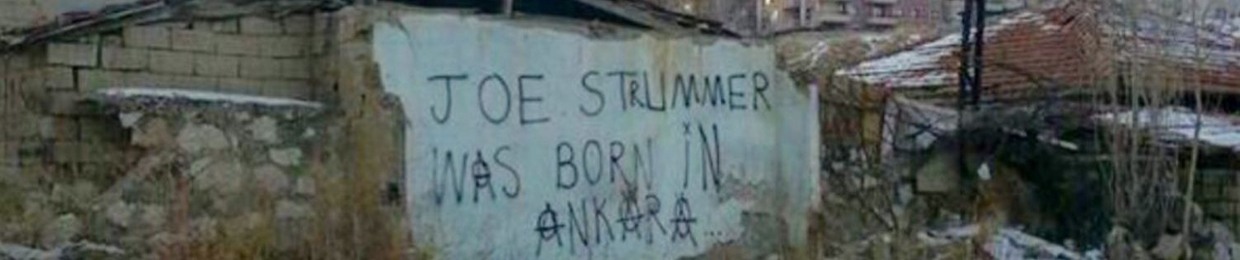 JOE. STRUMMER
WAS BORN iN
ANKARA...